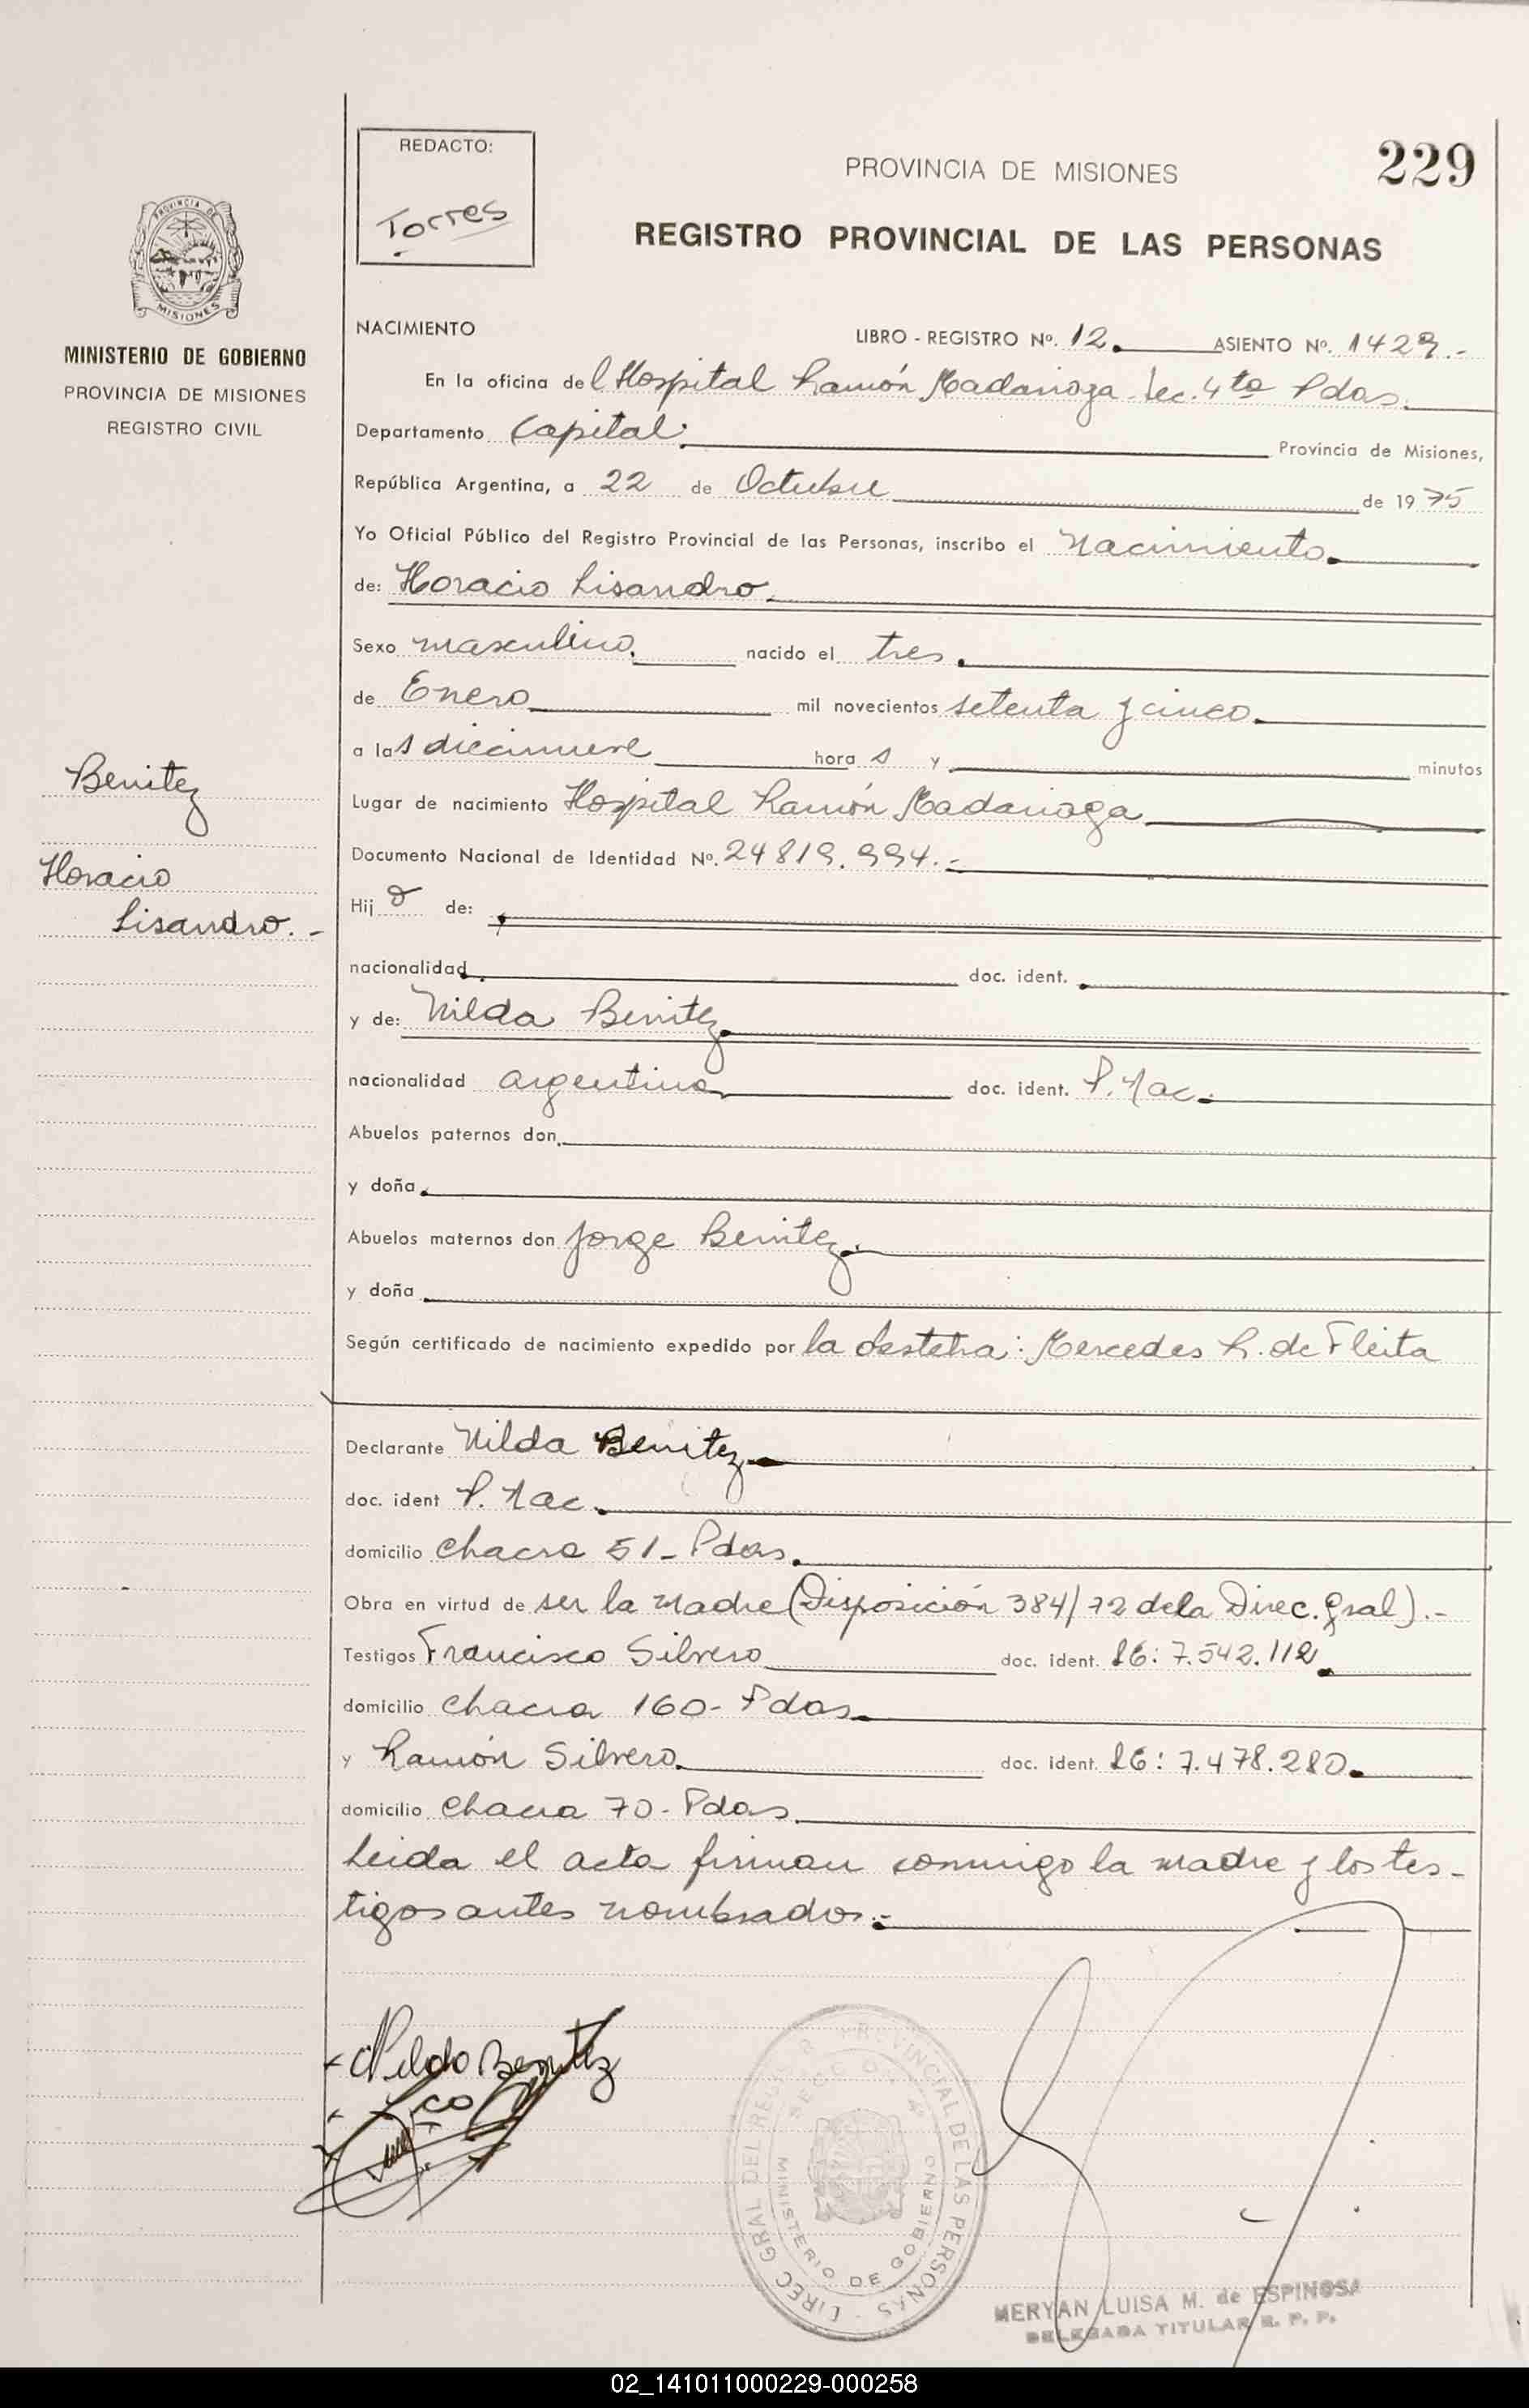 REDACTO:
Torres
PROVINCIA DE MISIONES
229
REGISTRO PROVINCIAL DE LAS PERSONAS
PROVINCIA DE
MISIONES
MINISTERIO DE GOBIERNO
PROVINCIA DE MISIONES
REGISTRO CIVIL
NACIMIENTO
LIBRO - REGISTRO Nº. 12. ASIENTO Nº. 1429.-
En la oficina del Hospital Ramón Madariaga Sec. 4ta Pdas.
Departamento Capital. Provincia de Misiones,
República Argentina, a 22 de Octubre de 1975
Yo Oficial Público del Registro Provincial de las Personas, inscribo el Nacimiento.
de: Horacio Lisandro.
Sexo masculino. nacido el tres.
de Enero mil novecientos setenta y cinco.
a las diecinueve horas y minutos
Lugar de nacimiento Hospital Ramón Madariaga
Documento Nacional de Identidad Nº. 24819.994.-
Hijo de:
nacionalidad doc. ident.
y de: Nilda Benitez
nacionalidad argentina doc. ident. P. Nac.
Abuelos paternos don
y doña
Abuelos maternos don Jorge Benitez.
y doña
Según certificado de nacimiento expedido por la obstetra: Mercedes R. de Fleita
Declarante Nilda Benitez
doc. ident P. Nac.
domicilio chacra 51- Pdas.
Obra en virtud de ser la madre (Disposición 384/72 de la Direc. Gral).-
Testigos Francisco Silvero doc. ident. LE: 7.542.112
domicilio chacra 160- Pdas
y Ramón Silvero. doc. ident. LE: 7.478.280.
domicilio chacra 70- Pdas
Leida el acta firman conmigo la madre y los tes-
tigos antes nombrados.-
Benitez
Horacio
Lisandro.-
Nilda Benitez
DIREC GRAL DEL REGISTRO PROVINCIAL DE LAS PERSONAS
SECCION 4ª
MINISTERIO DE GOBIERNO
MERYAN LUISA M. de ESPINOSA
DELEGADA TITULAR R. P. P.
02_141011000229-000258